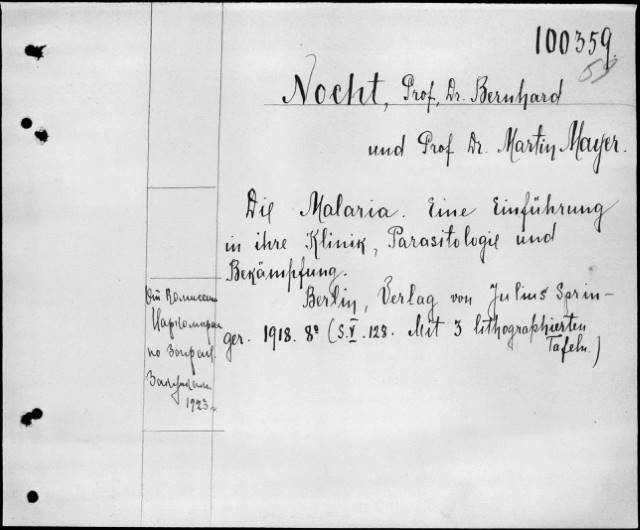 100359
Nocht, Prof. Dr. Bernhard
und Prof Dr. Martin Mayer.
Die Malaria. Eine Einführung
in ihre Klinik, Parasitologie und
Bekämpfung.
Berlin, Verlag von Julius Sprin-
ger. 1918. 8° (S.V.128. Mit 3 lithographierten
Tafeln.)
От
по
1923 г.